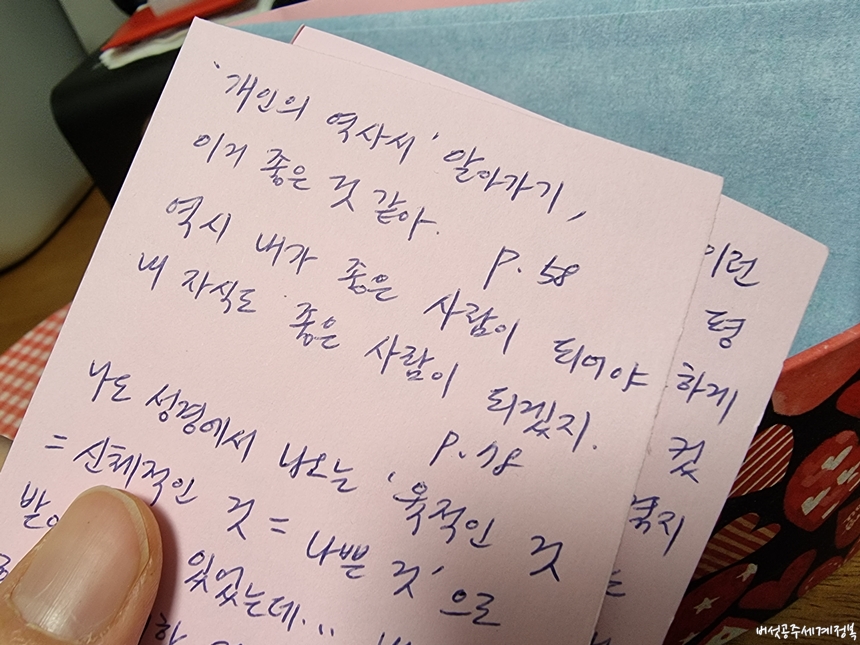 '개인의 역사서' 알아가기,
이거 좋은 것 같아.
p. 58
역시 내가 좋은 사람이 되어야
내 자식도 좋은 사람이 되겠지.
p. 78
나도 성경에서 나오는 '육적인 것
= 신체적인 것 = 나쁜 것'으로
있었는데...
이런
평
하게
컸
버섯공주세계정복